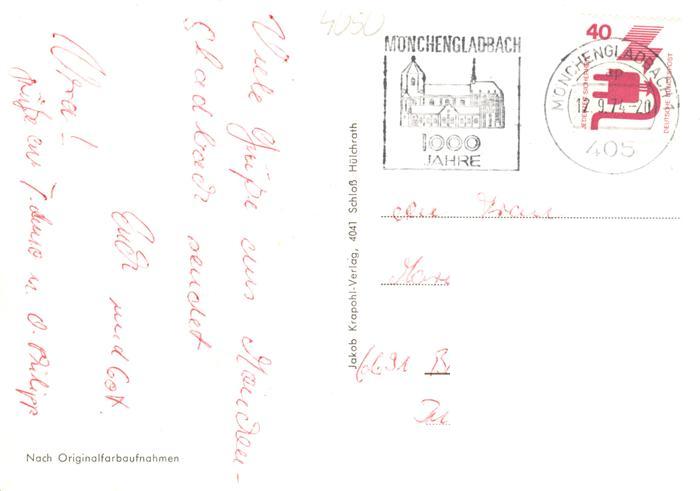 4050
MÖNCHENGLADBACH
1000
JAHRE
MÖNCHENGLADBACH 1
17.9.74-20
405
40
JEDERZEIT SICHERHEIT
DEUTSCHE BUNDESPOST
Viele Grüße aus München-
gladbach sendet
Euch und Gott.
Opa!
Grüße an T. Anna u. O. Philipp
Jakob Krapohl-Verlag, 4041 Schloß Hülchrath
6691
Nach Originalfarbaufnahmen